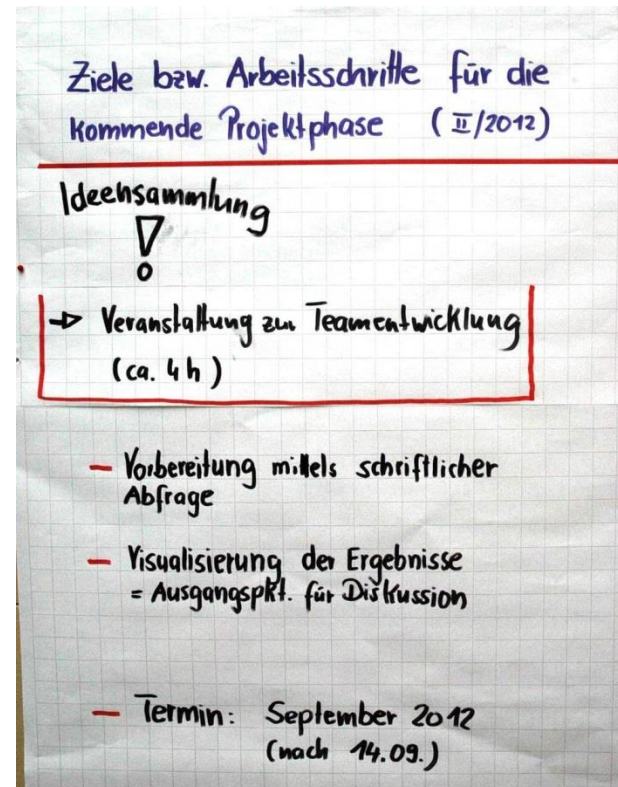 Ziele bzw. Arbeitsschritte für die
kommende Projektphase (II/2012)
Ideensammlung
!
→ Veranstaltung zur Teamentwicklung
(ca. 4h)
– Vorbereitung mittels schriftlicher
Abfrage
– Visualisierung der Ergebnisse
= Ausgangspkt. für Diskussion
– Termin: September 2012
(nach 14.09.)